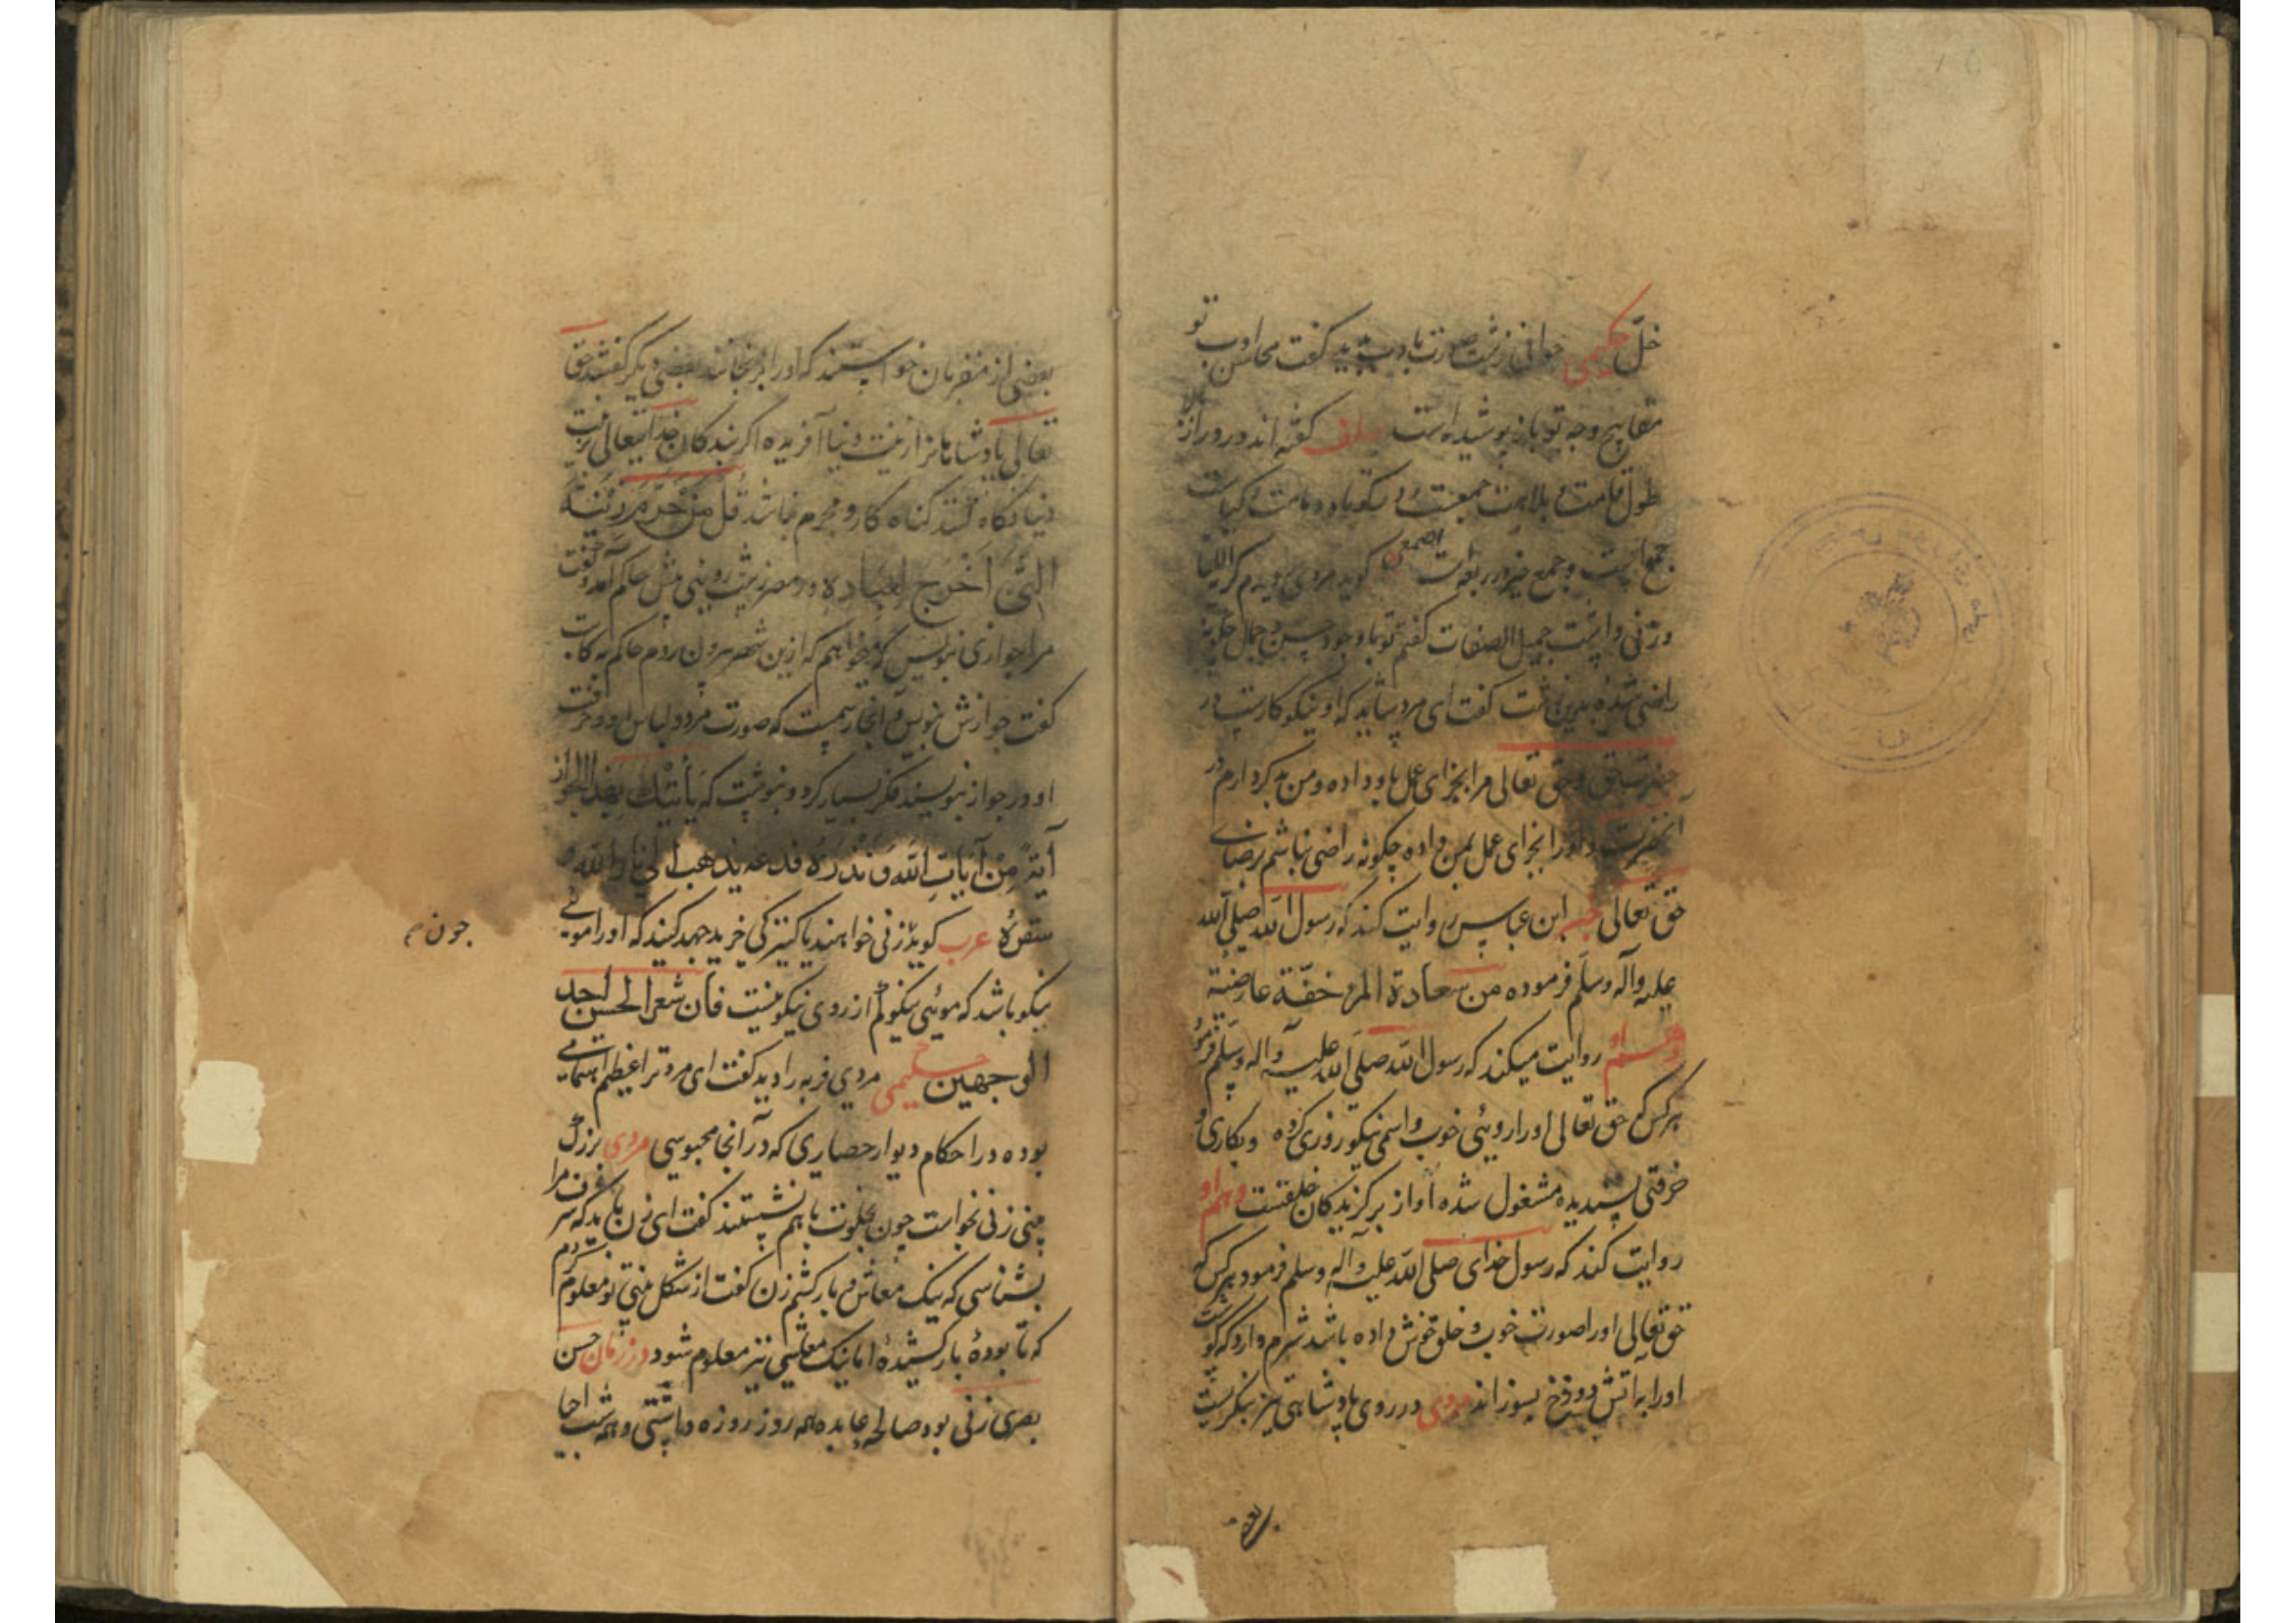 خلّ حکیمی جوانی زشت صورت با ادب دید گفت محاسن ادب تو
مقابح وجه تو باز پوشیده است سلف گفته اند در دراز بالا
طول قامت و بلاهت
جمع است و جمع ضد اصمعی گوید مردی دیدم کریه اللقا
و زنی داشت جمیل الصفات گفتم تو با وجود حسن و جمال چگونه
راضی شده بدین زشت گفت ای مرد شاید که او نیکوکارست در
حضرت خالق و حق تعالی مرا بجزای عمل باو داده و من بد کردارم در
آنحضرت و او را بجزای عمل بمن داده چگونه راضی نباشم برضای
حق تعالی خبر ابن عباس روایت کند که رسول الله صلی الله
علیه وآله وسلم فرموده من سعادة المرء خفّة عارضیه
وهم او روایت میکند که رسول الله صلی الله علیه وآله وسلم فرمود
هرکس که حق تعالی او را روئی خوب و اسمی نیکو روزی کرده و بکاری و
خرقتی پسندیده مشغول شده او از برگزیدگان خلقتست وهم او
روایت کند که رسول خدای صلی الله علیه وآله وسلم فرمود هرکس که
حق تعالی او را صورت خوب و خلق خوش داده باشد شرم دارد که گوشت
او را به آتش دوزخ بسوزاند مردی در روی پادشاهی تیز بنگریست
بعضی از مقربان خواستند که او را برنجانند بعضی دیگر گفتند حق
تعالی پادشاهانرا زینت دنیا آفریده اگر بندگان خدایتعالی بزینت
دنیا نگاه کنند گناه کار و مجرم نباشند قل من حرّم زینة
الله التی اخرج لعباده در مصر زشت روئی پیش حاکم آمد و گفت
مرا جوازی بنویس که میخواهم که ازین شهر بیرون روم حاکم به کاتب
گفت جوازش بنویس و آنجا رسمیست که صورت مرد و لباس او و حرفت
او در جواز بنویسند فکر بسیار کرد و بنوشت که یأتیک بهذا الجواز
آیةٌ من آیات الله و نذره فدعه یذهب الی نار الله و
سقره عرب گوید زنی خواهند یا کنیزکی خرید جهد کنید که او را موئی
نیکو باشد که موئی نیکو کم از روی نیکو نیست فان شعر الحسن احد
الوجهین حکیمی مردی فربه را دید گفت ای مرد ترا عظیم اهتمامی
بوده در احکام دیوار حصاری که در آنجا محبوسی مردی بزرگ
بینی زنی بخواست چون بخلوت با هم نشستند گفت ای زن باید که شرف مرا
بشناسی که نیک معاش و بارکشم زن گفت از شکل بینی تو معلوم کردم
که تا بودهٔ بار کشیدهٔ اما نیک معاشی نیز معلوم شود در زمان حسن
بصری زنی بود صالحه عابده همه روز روزه داشتی و همه شب احیا
چون م